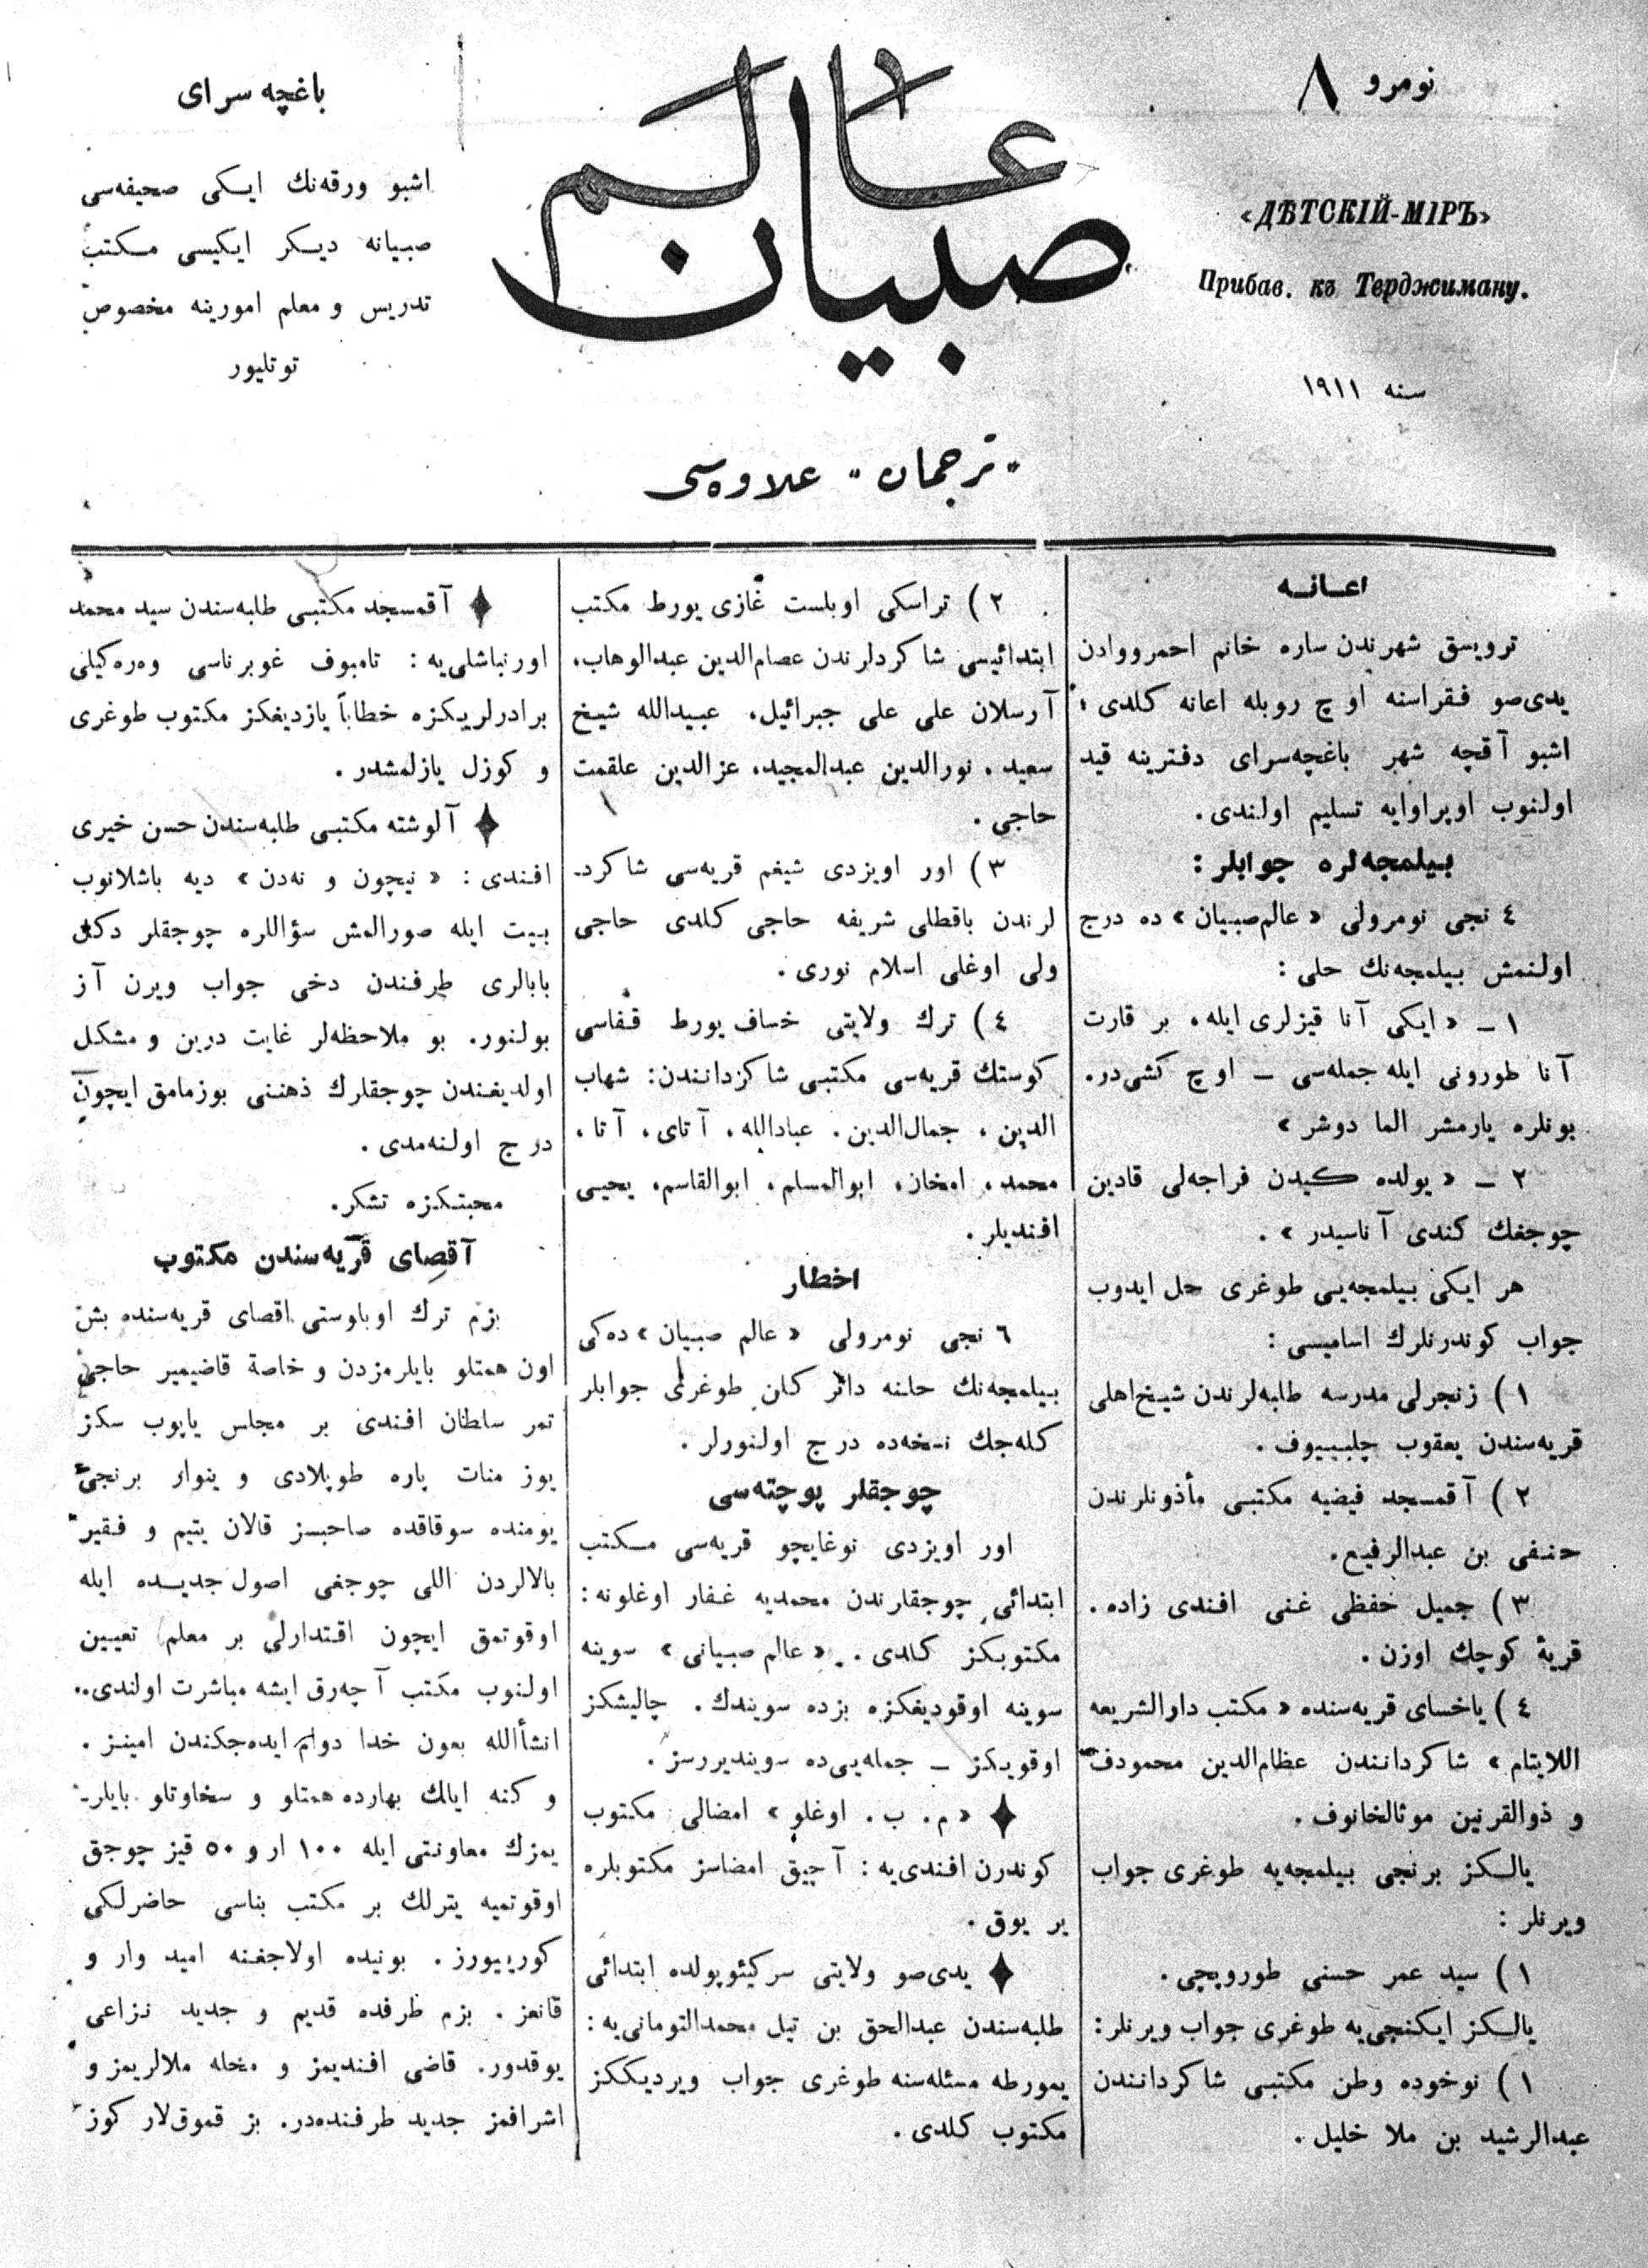 نومرو ٨
«ДѢТСКІЙ-МІРЪ»
Прибав. къ Терджиману.
سنه ١٩١١
عالم صبيان
"ترجمان" علاوه‌سى
باغچه سراى
اشبو ورقه‌نك ايكى صحيفه‌سى
صبيانه ديكر ايكيسى مكتب
تدريس و معلم امورينه مخصوص
توتليور
اعانه
ترويسق شهرندن ساره خانم احمرووادن
يدى‌صو فقراسنه اوچ روبله اعانه كلدى؛
اشبو آقچه شهر باغچه‌سراى دفترينه قيد
اولنوب اوپراوايه تسليم اولندى.
بيلمجه‌لره جوابلر:
٤ نجى نومرولى «عالم‌صبيان» ده درج
اولنمش بيلمجه‌نك حلى:
١ – «ايكى آنا قيزلرى ايله، بر قارت
آنا طورونى ايله جمله‌سى – اوچ كشى‌در.
بونلره يارمشر الما دوشر»
٢ – «يولده كيدن فراجه‌لى قادين
چوجغك كندى آناسيدر».
هر ايكى بيلمجه‌يى طوغرى حل ايدوب
جواب كوندرنلرك اساميسى:
١) زنجرلى مدرسه طلبه‌لرندن شيخ‌اهلى
قريه‌سندن يعقوب چلبييوف.
٢) آقمسجد فيضيه مكتبى مأذونلرندن
حنفى بن عبدالرفيع.
٣) جميل حفظى غنى افندى زاده.
قريۀ كوچك اوزن.
٤) ياخساى قريه‌سنده «مكتب دارالشريعه
اللايتام» شاكرداننــدن عظام‌الدين محمودف
و ذوالقرنين موثالخانوف.
يالكز برنجى بيلمجه‌يه طوغرى جواب
ويرنلر:
١) سيد عمر حسنى طوروپچى.
يالكز ايكنجى‌يه طوغرى جواب ويرنلر:
١) نوخوده وطن مكتبى شاكرداننــدن
عبدالرشيد بن ملا خليل.
٢) تراسكى اوبلست غازى يورط مكتب
ابتدائيسى شاكردلرندن عصام‌الدين عبدالوهاب،
آرسلان على على جبرائيل، عبيدالله شيخ
سعيد، نورالدين عبدالمجيد، عزالدين علقمت
حاجى.
٣) اور اويزدى شيغم قريه‌سى شاكرد-
لرندن باقطلى شريفه حاجى كلدى حاجى
ولى اوغلى اسلام نورى.
٤) ترك ولايتى خساف يورط قفاسى
كوستك قريه‌سى مكتبى شاكردانندن: شهاب
الدين، جمال‌الدين، عبادالله، آتاى، آتا،
محمد، امخان، ابوالمسلم، ابوالقاسم، يحيى
افنديلر.
اخطار
٦ نجى نومرولى «عالم صبيان» ده‌كى
بيلمجه‌نك حلنه دائر كلن طوغرى جوابلر
كله‌جك نسخه‌ده درج اولنورلر.
چوجقلر پوچته‌سى
اور اويزدى نوغايچو قريه‌سى مكتب
ابتدائى چوجقلرندن محمديه غفار اوغلونه:
مكتوبكز كلدى. «عالم صبيانى» سوينه
سوينه اوقوديغكزه بزده سويندك. چاليشكز
اوقويكز – جمله‌يى‌ده سوينديررسز.
«م. ب. اوغلو» امضالى مكتوب
كوندرن افندى‌يه: آچيق امضاسز مكتوبلره
ير يوق.
يدى‌صو ولايتى سركيئوپولده ابتدائى
طلبه‌سندن عبدالحق بن تيل محمدالتومانى‌يه:
يمورطه مسئله‌سنه طوغرى جواب ويرديككز
مكتوب كلدى.
آقمسجد مكتبى طلبه‌سندن سيد محمد
اورنباشلى‌يه: تامبوف غوبرناسى وه‌ره‌كيلى
برادرلريكزه خطاباً يازديغكز مكتوب طوغرى
و كوزل يازلمشدر.
آلوشته مكتبى طلبه‌سندن حسن خيرى
افندى: «نيچون و نه‌دن» ديه باشلانوب
بيت ايله صورالمش سؤاللره چوجقلر دكل
بابالرى طرفندن دخى جواب ويرن آز
بولنور. بو ملاحظه‌لر غايت درين و مشكل
اولديغندن چوجقلرك ذهننى بوزمامق ايچون
درج اولنه‌مدى.
محبتكزه تشكر.
آقصاى قريه‌سندن مكتوب
بزم ترك اوباوستى اقصاى قريه‌سنده بش
اون همتلو بايلرمزدن و خاصة قاضيمير حاجى
تمر سلطان افندى بر مجلس ياپوب سكز
يوز منات پاره طوپلادى و ينوار برنجى
يومنده سوقاقده صاحبسز قالان يتيم و فقير
بالالردن اللى چوجغى اصول جديده ايله
اوقوتمق ايچون اقتدارلى بر معلم تعيين
اولنوب مكتب آچه‌رق ايشه مباشرت اولندى..
انشأالله بعون خدا دوام ايده‌جكندن امينز.
و كنه اياك بهارده همتلو و سخاوتلو بايلر-
يمزك معاونتى ايله ١٠٠ ار و ٥٠ قيز چوجق
اوقوتميه يترلك بر مكتب بناسى حاضرلكى
كورييورز. بونيده اولاجغنه اميد وار و
قانعز. بزم طرفده قديم و جديد نزاعى
يوقدور. قاضى افنديمز و محله ملالريمز و
اشرافمز جديد طرفنده‌در. بز قموق‌لار كوز